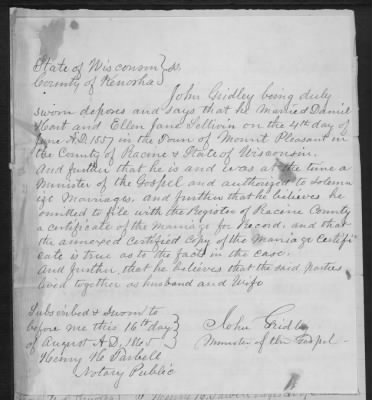 State of Wisconsin } ss.
County of Kenosha }
John Gridley being duly
sworn deposes and says that he Married Daniel
Hart and Ellen Jane Sullivin on the 4th day of
June A.D. 1857 in the Town of Mount Pleasant in
the County of Racine & State of Wisconsin.
And further that he is and was at the time a
Minister of the Gospel and authorized to solemn
ize Marriages, and further that he believes he
omitted to file with the Register of Racine County
a certificate of the Marriage for Record, and that
the annexed Certified Copy of the Marriage Certifi
cate is true as to the facts in the case.
And further, that he believes that the said parties
lived together as husband and Wife
Subscribed & sworn to
before me this 16th day
of August A.D. 1865
Henry H. Tarbell
Notary Public
John Gridley
Minister of the Gospel